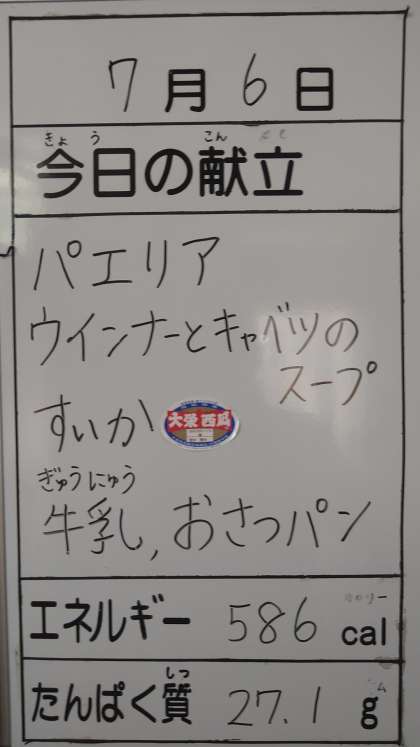 7月6日
きょう こん
今日の献立
パエリア
ウインナーとキャベツの
スープ
すいか 大栄西瓜
ぎゅうにゅう
牛乳, おさつパン
エネルギー 586 cal
しつ
たんぱく質 27.1 g